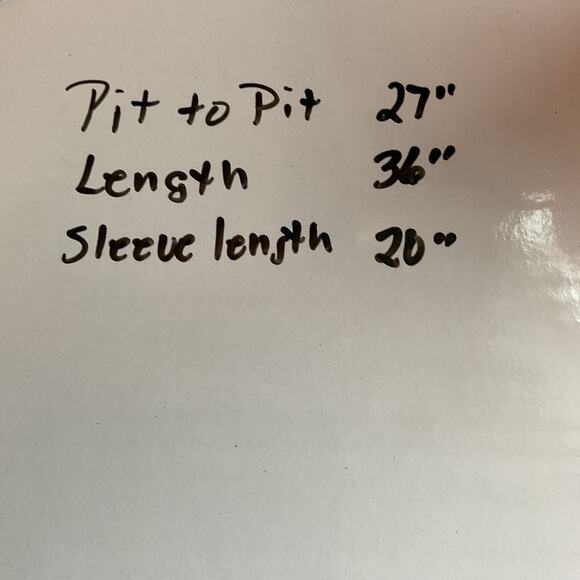 Pit to Pit 27"
Length 36"
Sleeve length 20"